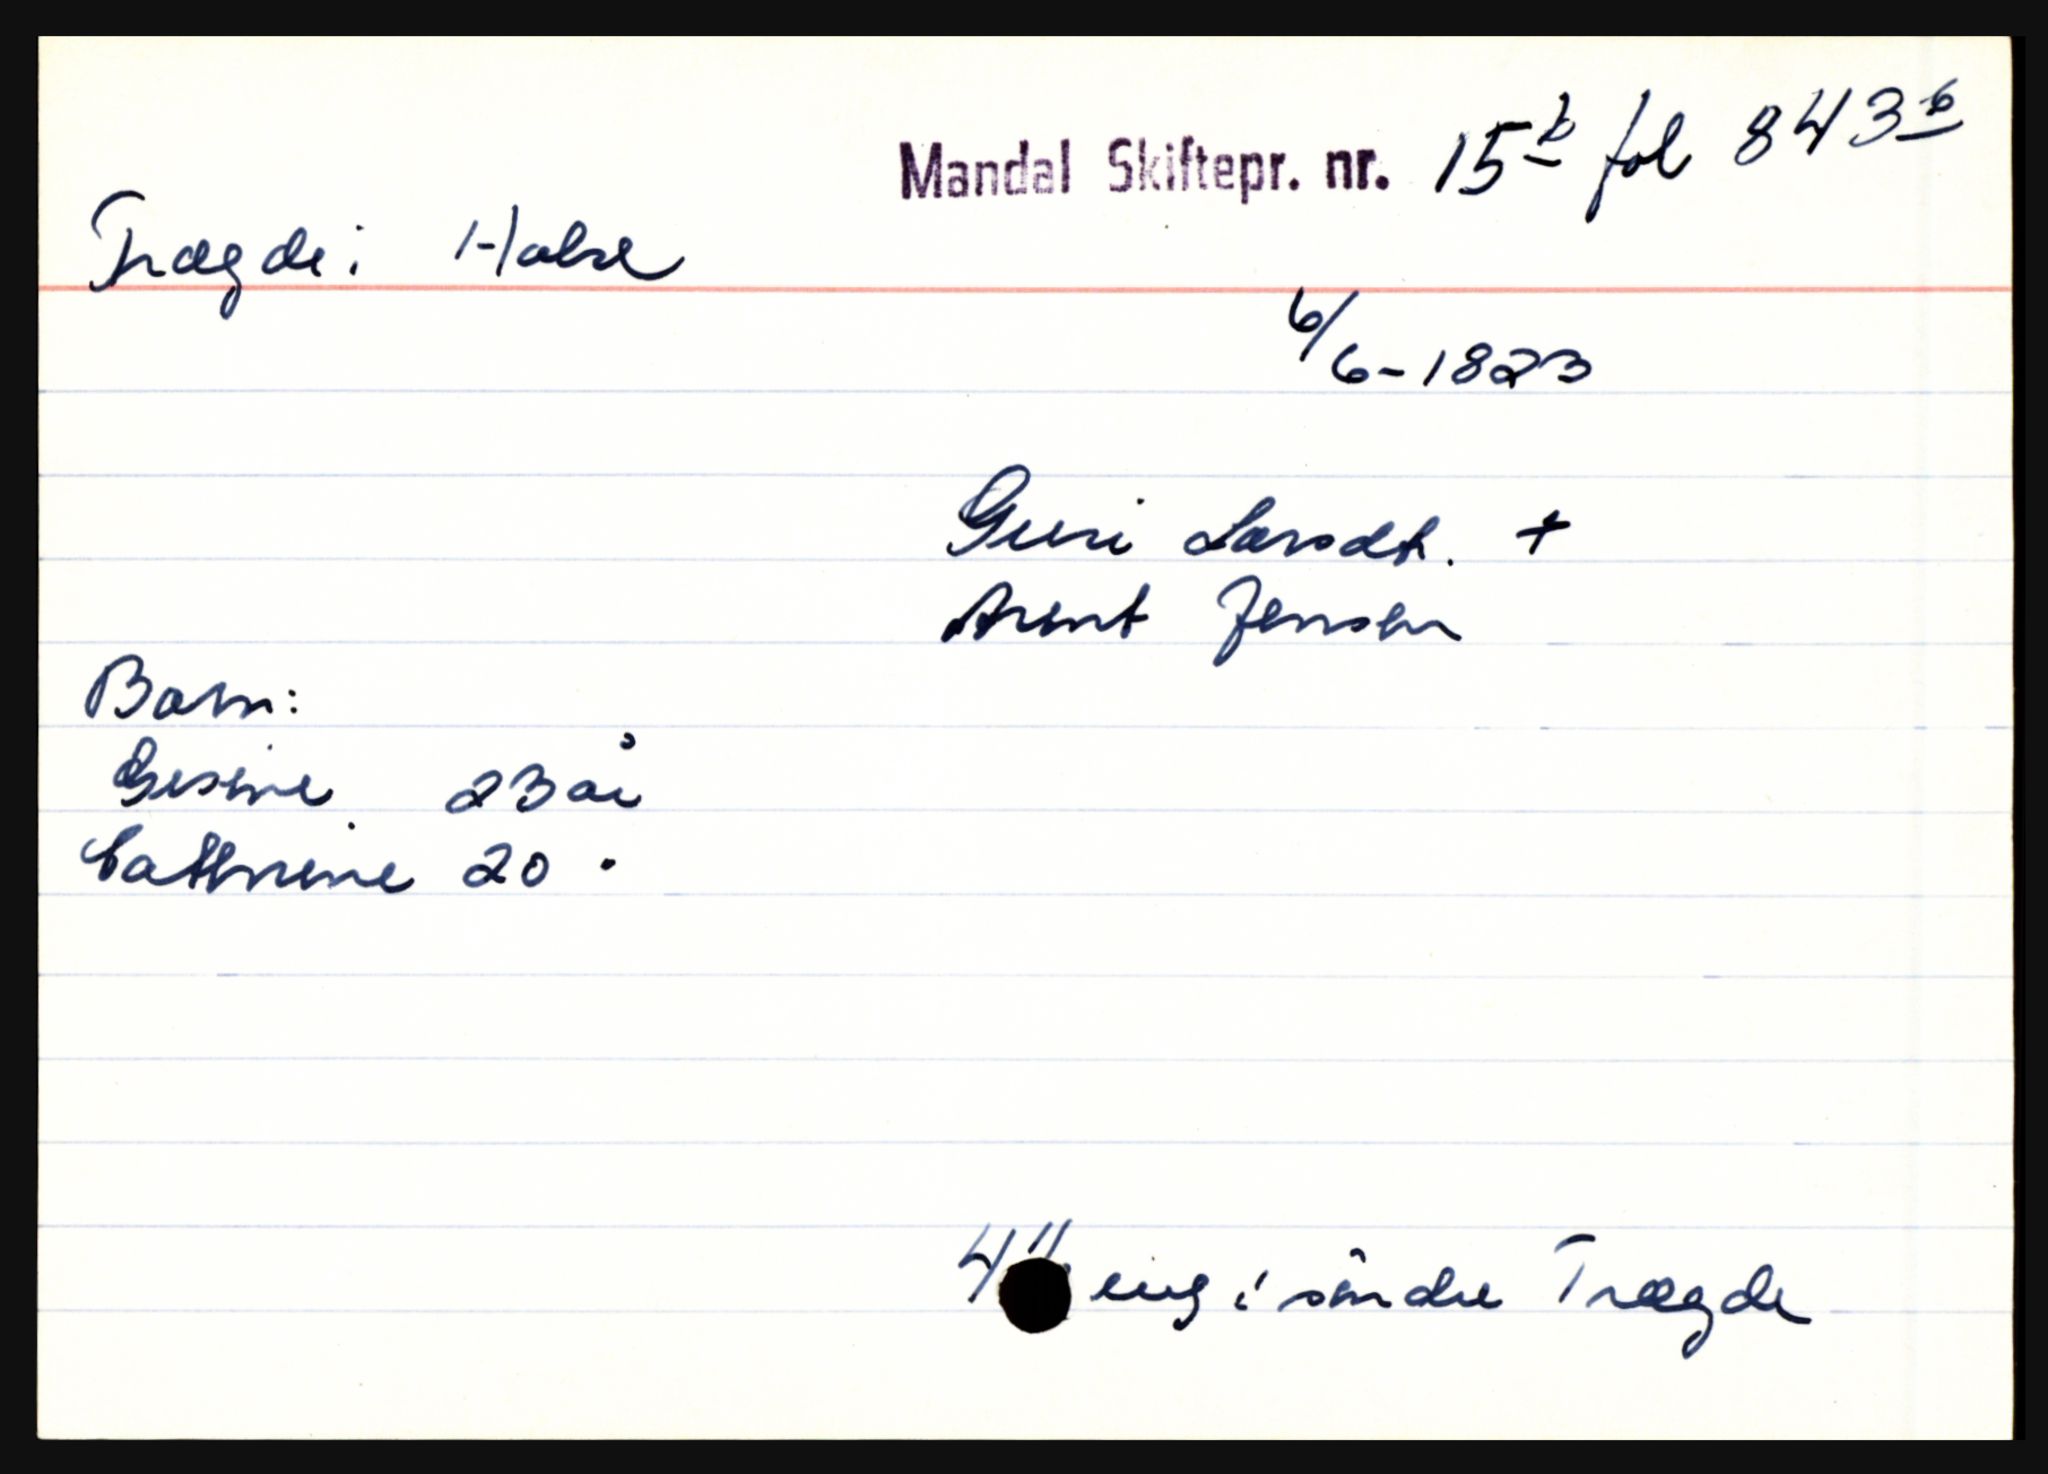 Mandal Skiftepr. nr. 15b fol 843b
Trægde i Halse
6/6-1823
Guri Larsdt. +
Arent Jensen
Barn:
Gesine 23 år
Cathrine 20 "
4 eng i søndre Trægde